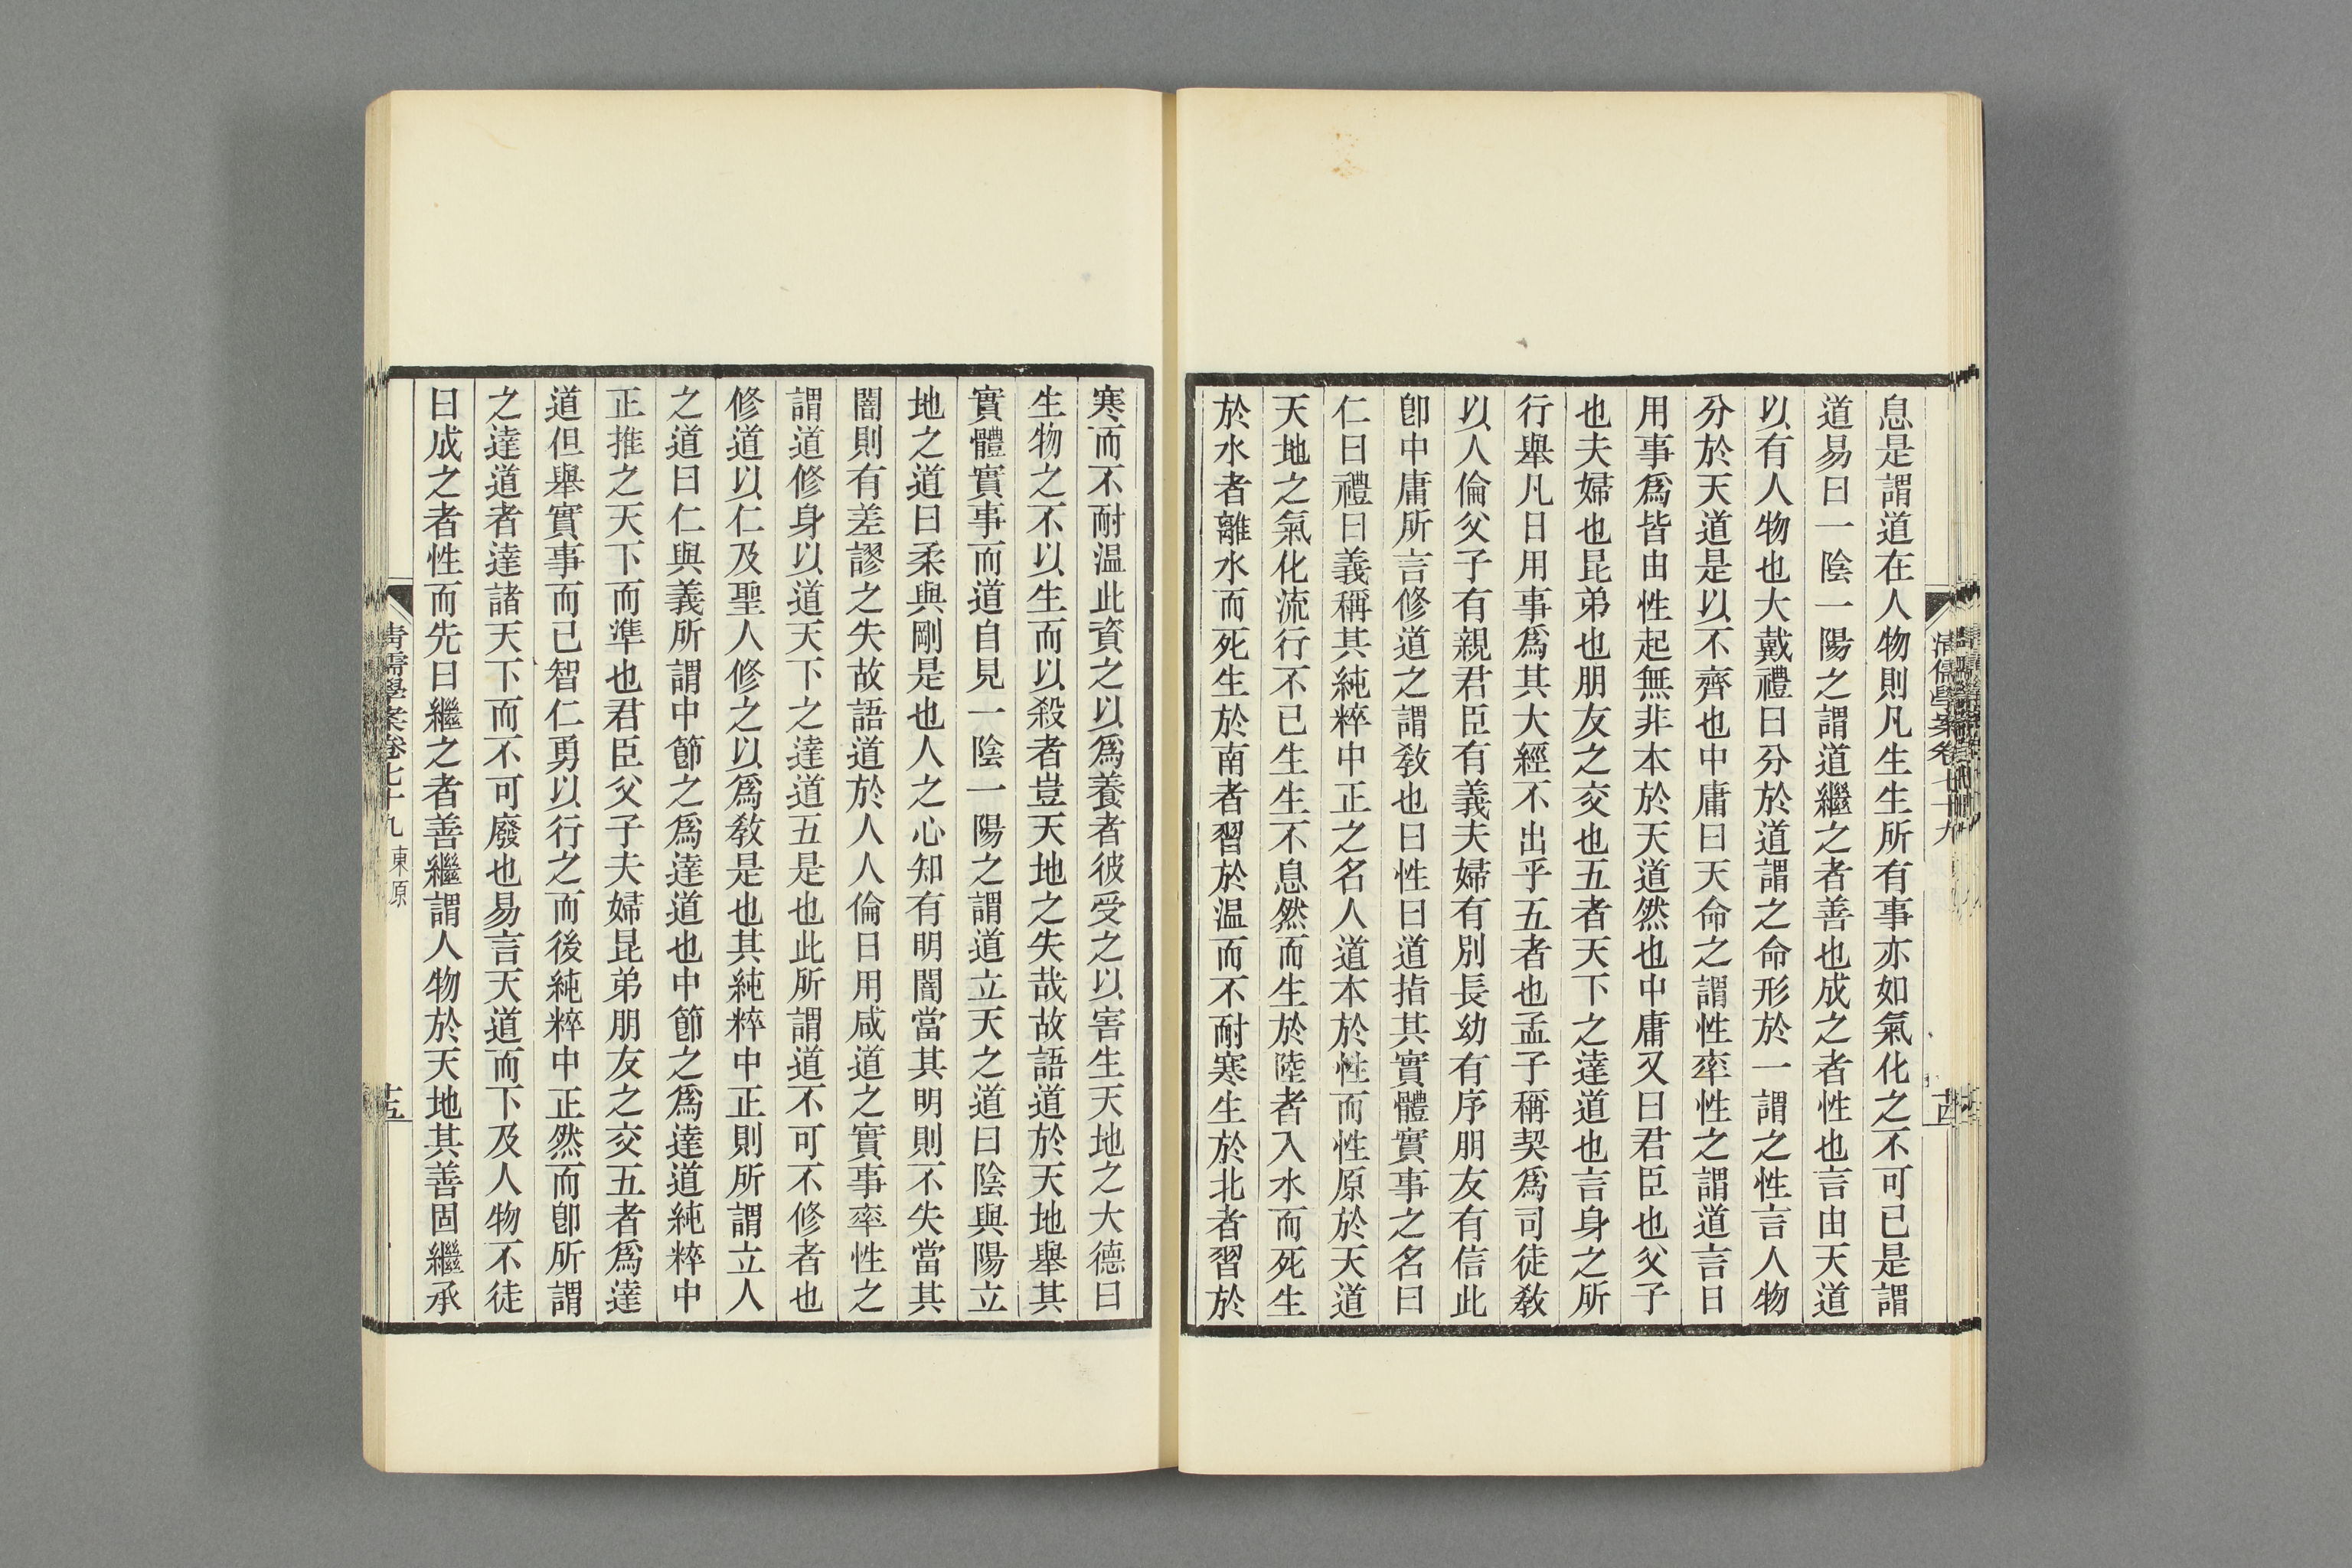 息是謂道在人物則凡生生所有事亦如氣化之不可已是謂
道易曰一陰一陽之謂道繼之者善也成之者性也言由天道
以有人物也大戴禮曰分於道謂之命形於一謂之性言人物
分於天道是以不齊也中庸曰天命之謂性率性之謂道言日
用事爲皆由性起無非本於天道然也中庸又曰君臣也父子
也夫婦也昆弟也朋友之交也五者天下之達道也言身之所
行舉凡日用事爲其大經不出乎五者也孟子稱契爲司徒敎
以人倫父子有親君臣有義夫婦有別長幼有序朋友有信此
卽中庸所言修道之謂敎也曰性曰道指其實體實事之名曰
仁曰禮曰義稱其純粹中正之名人道本於性而性原於天道
天地之氣化流行不已生生不息然而生於陸者入水而死生
於水者離水而死生於南者習於温而不耐寒生於北者習於
清儒學案卷七十九
十四
寒而不耐温此資之以爲養者彼受之以害生天地之大德曰
生物之不以生而以殺者豈天地之失哉故語道於天地舉其
實體實事而道自見一陰一陽之謂道立天之道曰陰與陽立
地之道曰柔與剛是也人之心知有明闇當其明則不失當其
闇則有差謬之失故語道於人人倫日用咸道之實事率性之
謂道修身以道天下之達道五是也此所謂道不可不修者也
修道以仁及聖人修之以爲敎是也其純粹中正則所謂立人
之道曰仁與義所謂中節之爲達道也中節之爲達道純粹中
正推之天下而準也君臣父子夫婦昆弟朋友之交五者爲達
道但舉實事而已智仁勇以行之而後純粹中正然而卽所謂
之達道者達諸天下而不可廢也易言天道而下及人物不徒
曰成之者性而先曰繼之者善繼謂人物於天地其善固繼承
清儒學案卷七十九 東原
十五